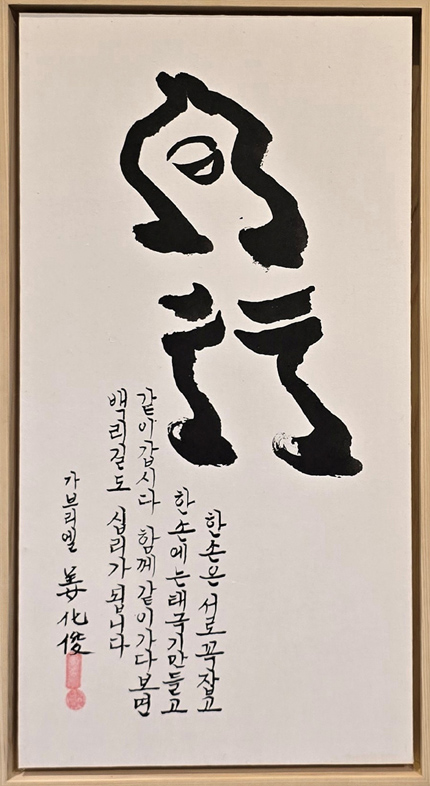 行
한손은 서로 꼭잡고
한손에는 태극기만들고
같이갑시다 함께 같이가다보면
백리길도 십리가 됩니다
가브리엘 姜化俊